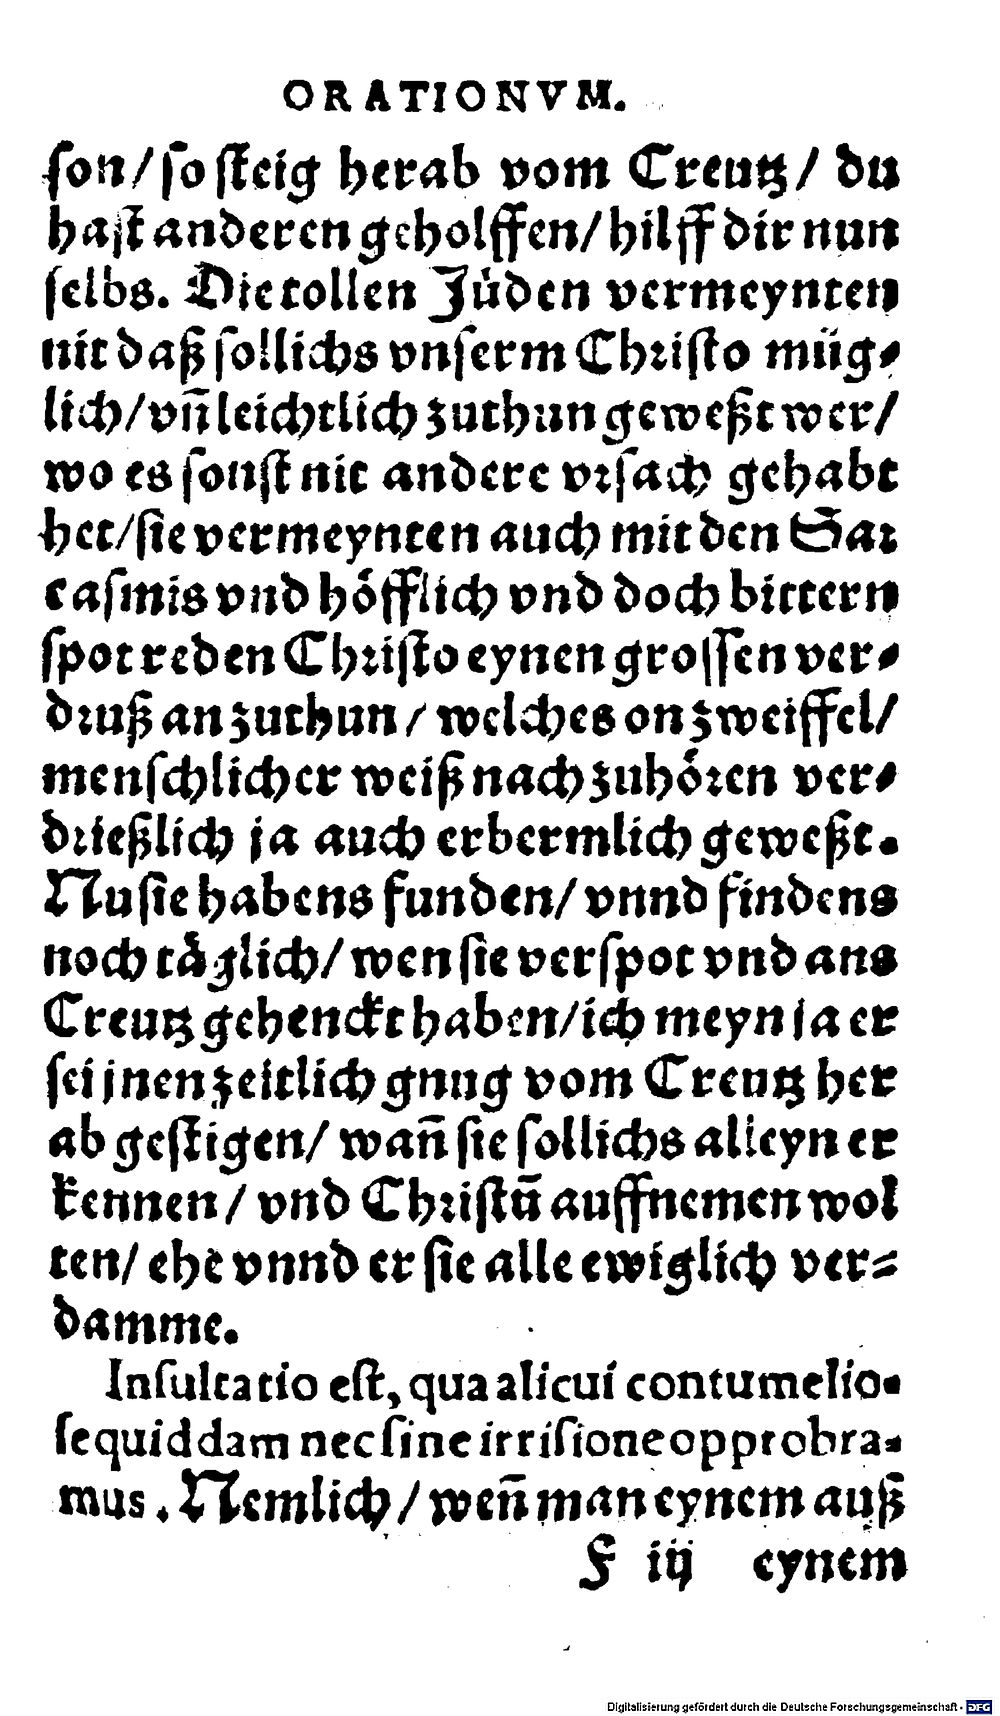 ORATIONVM.
ſon/ ſo ſteig herab vom Creutz/ du
haſt anderen geholffen/ hilff dir nun
ſelbs. Die tollen Juͤden vermeynten
nit daß ſollichs vnſerm Chꝛiſto müg⸗
lich/ vñ leichtlich zuthun geweßt wer/
wo es ſonſt nit andere vꝛſach gehabt
het/ ſie vermeynten auch mit den Saꝛ
caſmis vnd hoͤfflich vnd doch bittern
ſpot reden Chꝛiſto eynen groſſen ver⸗
dꝛuß an zuthun/ welches on zweiffel/
menſchlicher weiß nach zuhoͤꝛen ver⸗
dꝛießlich ja auch erbermlich geweßt.
Nu ſie habens funden/ vnnd findens
noch taͤglich/ wen ſie verſpot vnd ans
Creutz gehenckt haben/ ich meyn ja er
ſei jnen zeitlich gnug vom Creutz her
ab geſtigen/ wañ ſie ſollichs alleyn er
kennen/ vnd Chꝛiſtũ auffnemen wol
ten/ ehe vnnd er ſie alle ewiglich ver⸗
damme.
Inſultatio eſt, qua alicui contumelio⸗
ſe quiddam nec ſine irriſione opprobra⸗
mus. Nemlich/ weñ man eynem auß
F iij eynem
Digitalisierung gefördert durch die Deutsche Forschungsgemeinschaft - DFG